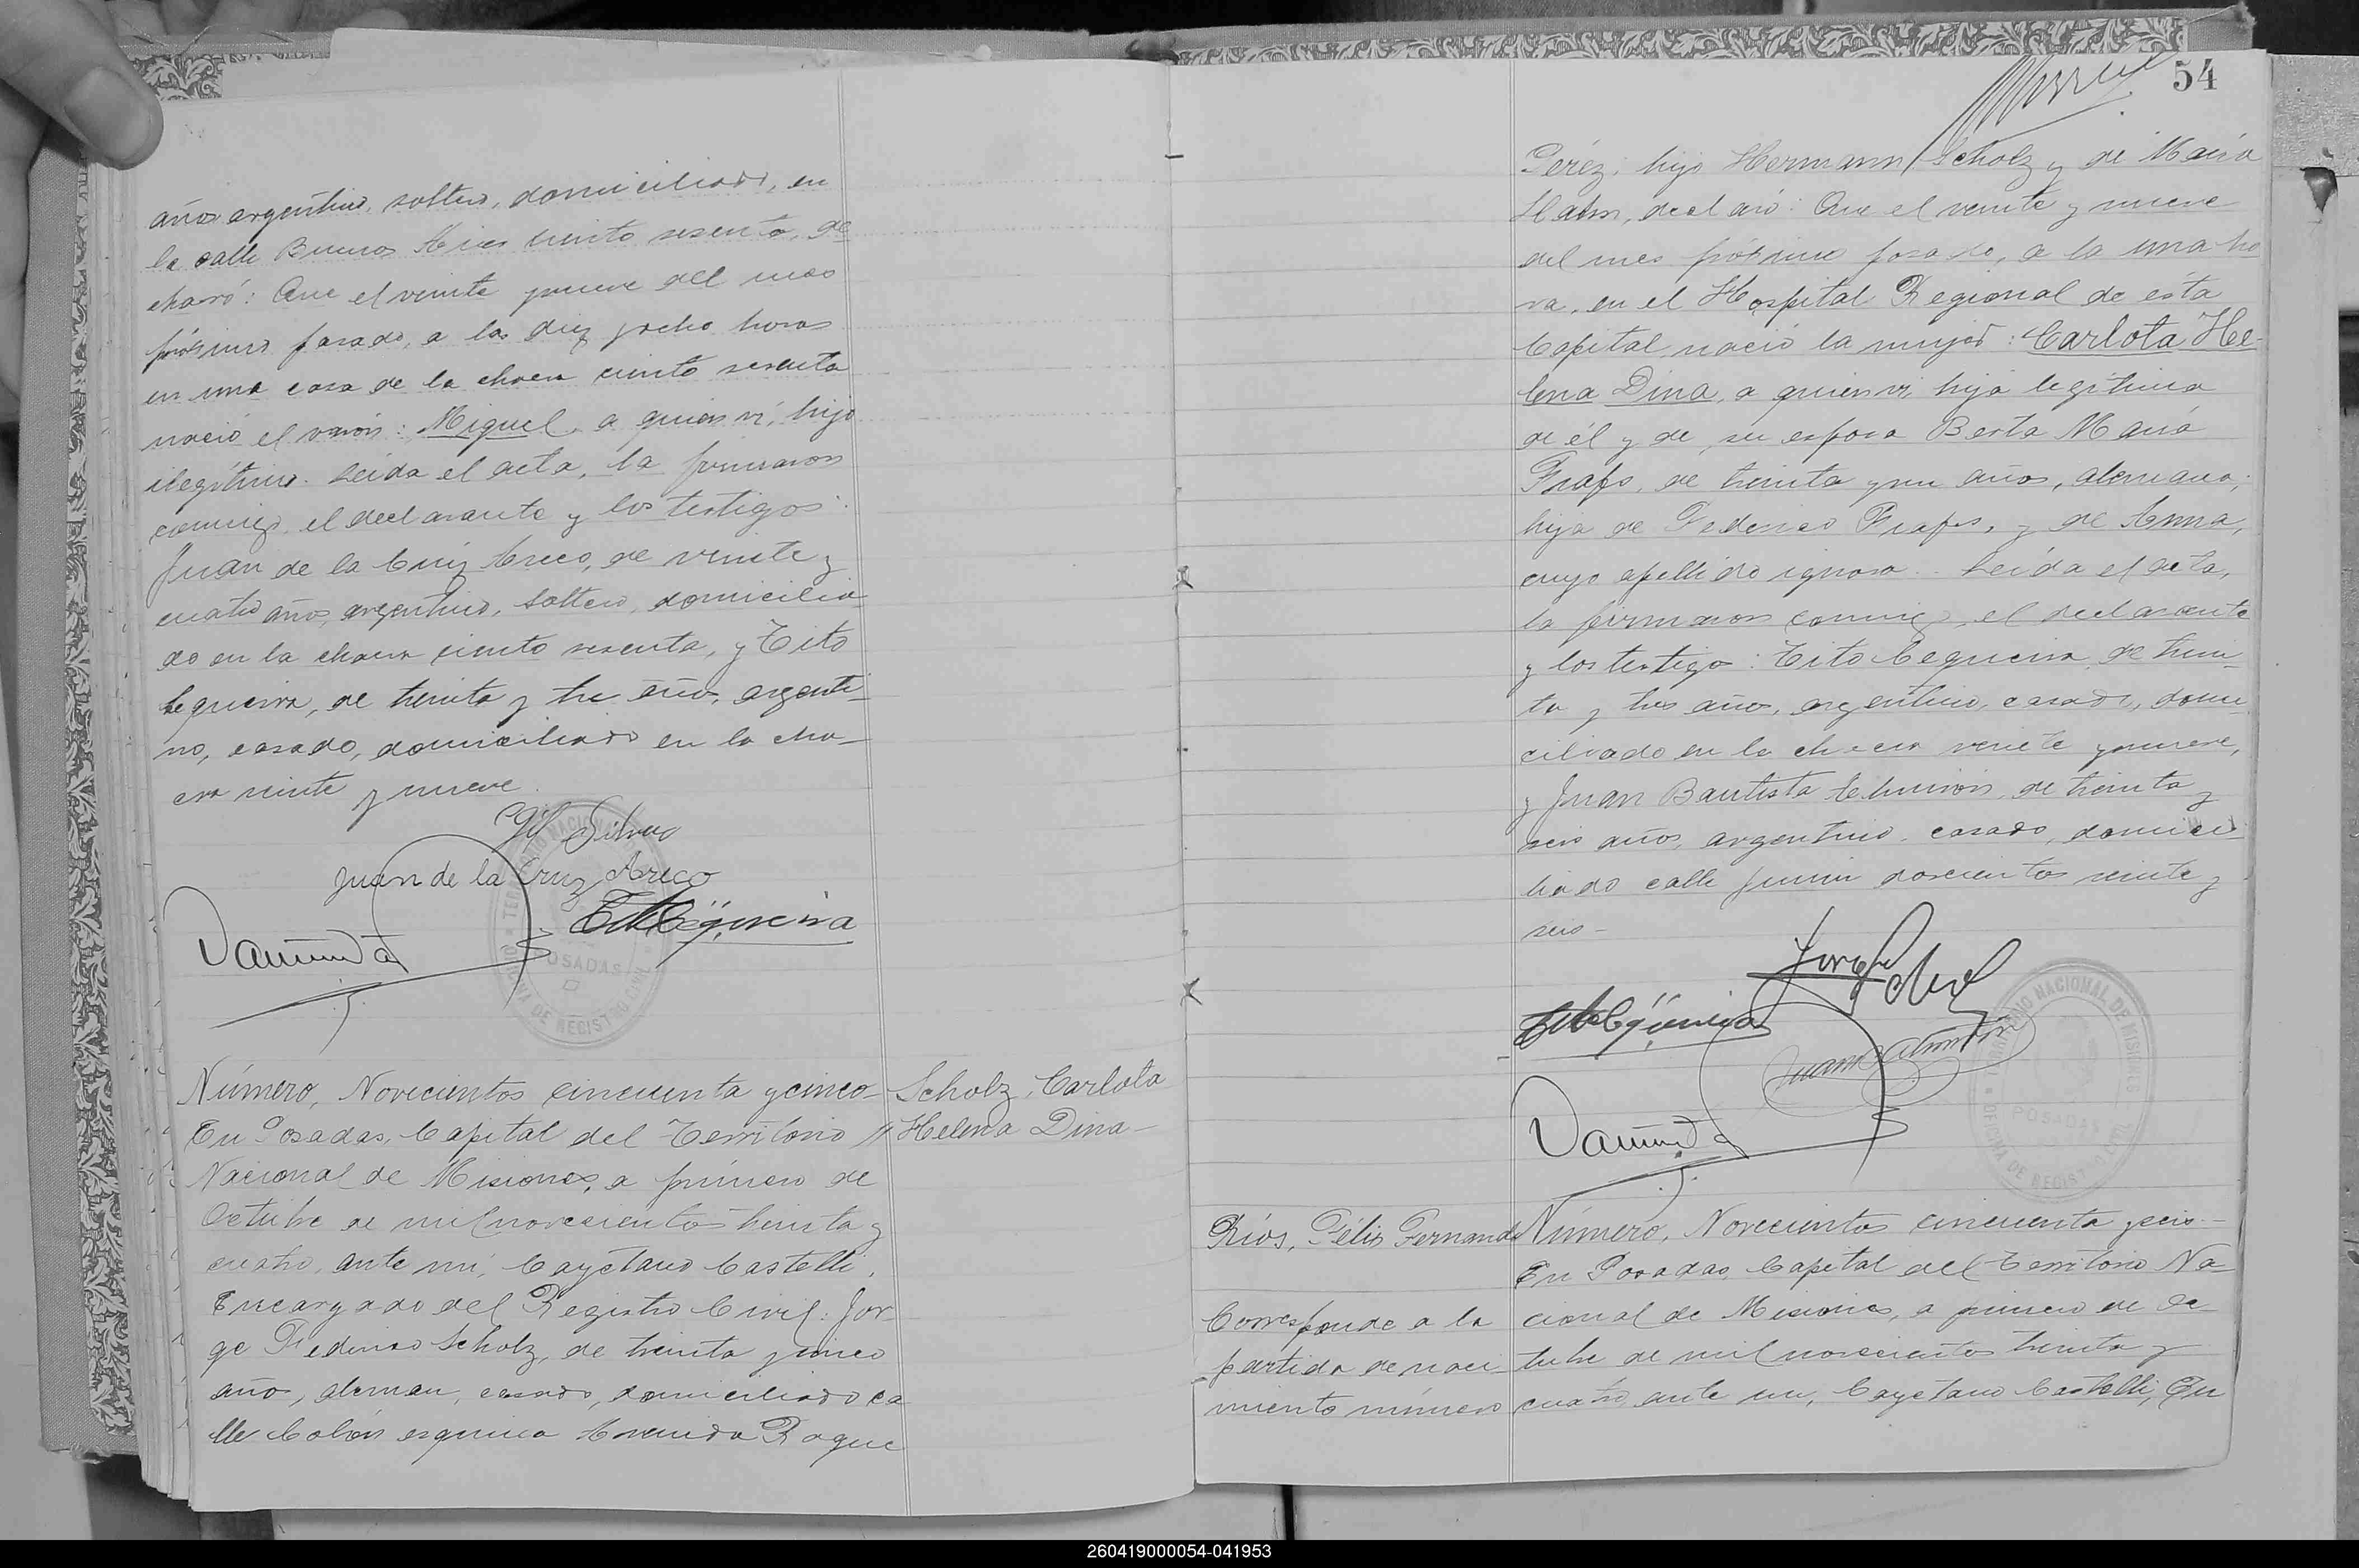 años argentino, soltero, domiciliado, en
la calle Buenos Aires ciento sesenta, de
claró: Que el veinte y nueve del mes
próximo pasado, a las diez y ocho horas
en una casa de la chacra ciento sesenta
nació el varón: Miguel, a quien ví, hijo
ilegítimo. Leída el acta, la firmaron
conmigo, el declarante y los testigos:
Juan de la Cruz Areco, de veinte y
cuatro años, argentino, soltero, domicilia
do en la chacra ciento sesenta, y Tito
Cequeira, de treinta y tres años, argenti-
no, casado, domiciliado en la cha-
cra veinte y nueve.
Gil
Juan de la Cruz Areco
Tito Ceqüeira
TERRITORIO NACIONAL
POSADAS
OFICINA DE REGISTRO CIVIL
Número, Novecientos cincuenta y cinco-
En Posadas, Capital del Territorio //
Nacional de Misiones, a primero de
Octubre de mil novecientos treinta y
cuatro, ante mí, Cayetano Castelli,
Encargado del Registro Civil: Jor-
ge Federico Scholz, de treinta y cinco
años, aleman, casado, domiciliado ca
lle Colón esquina Avenida Roque
Scholz, Carlota
Helena Dina-
54
Pérez; hijo Hermann Scholz y de María
Hahn, declaró: Que el veinte y nueve
del mes próximo pasado, a la una ho
ra, en el Hospital Regional de ésta
Capital nació la mujer: Carlota He-
lena Dina, a quien ví, hija legítima
de él y de su esposa Berta María
de treinta y un años, alemana;
hija de Federico y de Anna,
cuyo apellido ignora. Leída el acta,
la firmaron conmigo, el declarante
y los testigos: Tito Cequeira, de trein-
ta y tres años, argentino, casado, domi-
ciliado en la chacra veinte y nueve,
y Juan Bautista de treinta y
seis años, argentino, casado, domici
liado calle Junín doscientos veinte y
seis-
Jorge Scholz
Tito Ceqüeira
TERRITORIO NACIONAL DE MISIONES
POSADAS
OFICINA DE REGISTRO CIVIL
Ríos, Félix Fernando
Corresponde a la
partida de naci-
miento número
Número, Novecientos cincuenta y seis-
En Posadas, Capital del Territorio Na
cional de Misiones, a primero de Oc-
tubre de mil novecientos treinta y
cuatro, ante mí, Cayetano Castelli, En
260419000054-041953